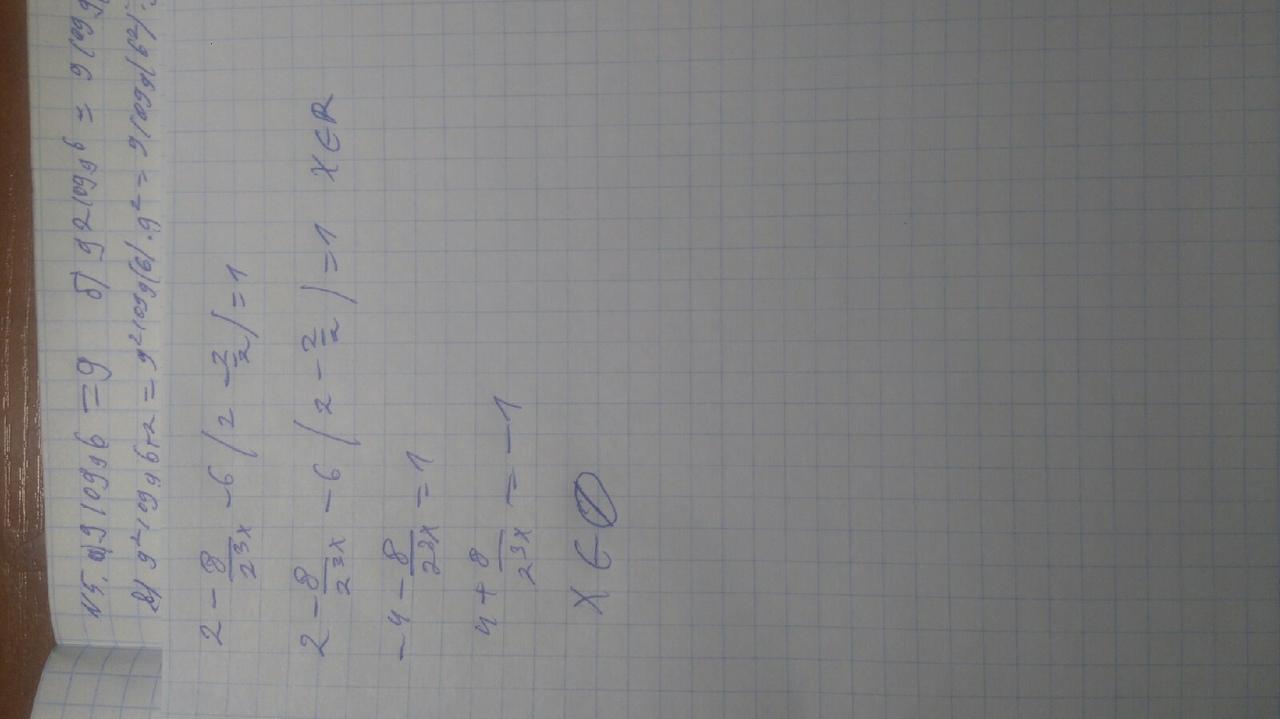 N5. а) 9 log₉6 = 9 б) 9 2 log₉6 = 9 log₉
в) 9² log₉6+2 = 9² log₉(6) · 9² = 9 log₉(6²) ·
2 - 8/2^3x - 6 (2 - 2/2) = 1
2 - 8/2^3x - 6 (2 - 2/2) = 1 x ∈ R
-4 - 8/2^3x = 1
4 + 8/2^3x = -1
x ∈ ∅